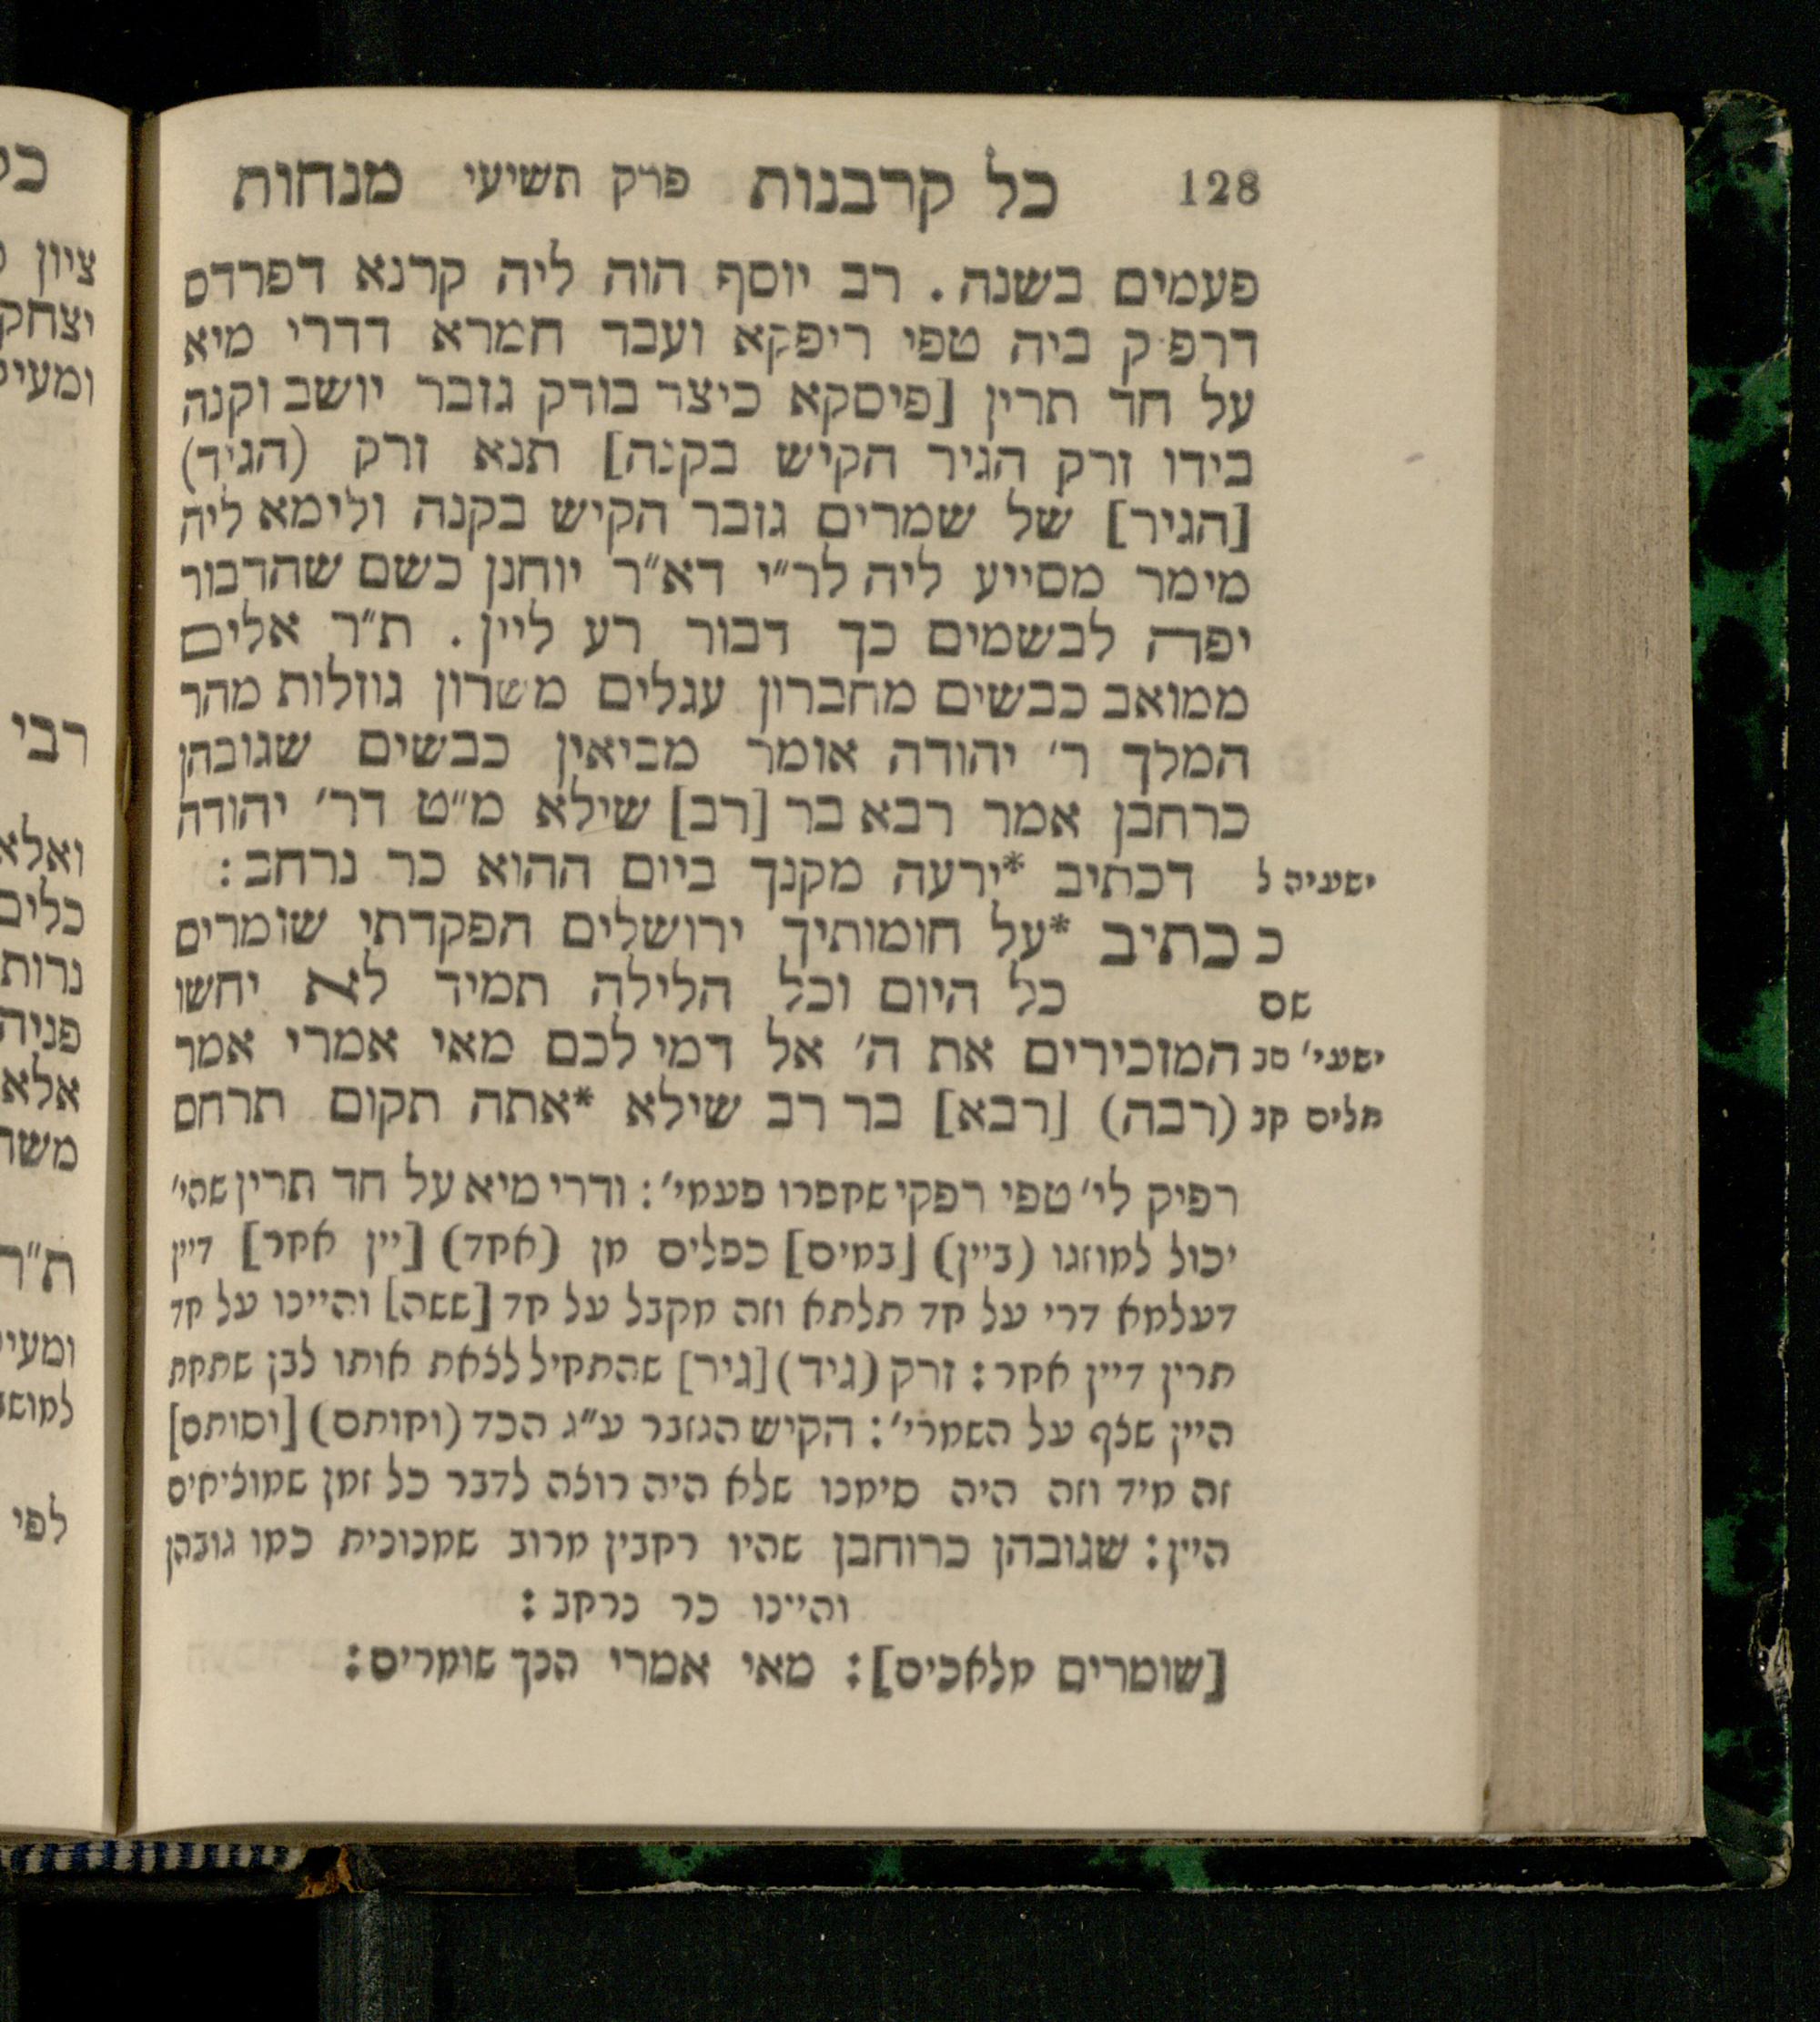 128 כל קרבנות פרק תשיעי מנחות
פעמים בשנה. רב יוסף הוה ליה קרנא דפרדס
דרפ׳ק ביה טפי ריפקא ועבד חמרא דדרי מיא
על חד תרין [פיסקא כיצד בודק גזבר יושב וקנה
בידו זרק הגיר הקיש בקנה] תנא זרק (הגיד)
[הגיר] של שמרים גזבר הקיש בקנה ולימא ליה
מימר מסייע ליה לר״י דא״ר יוחנן כשם שהדבור
יפה לבשמים כך דבור רע ליין. ת״ר אלים
ממואב כבשים מחברון עגלים משרון גוזלות מהר
המלך ר׳ יהודה אומר מביאין כבשים שגובהן
כרחבן אמר רבא בר [רב] שילא מ״ט דר׳ יהודה
ישעיה ל דכתיב *ירעה מקנך ביום ההוא כר נרחב:
כ כתיב *על חומותיך ירושלים הפקדתי שומרים
שם כל היום וכל הלילה תמיד לא יחשו
ישעי׳ סב המזכירים את ה׳ אל דמי לכם מאי אמרי אמר
תלים קב (רבה) [רבא] בר רב שילא *אתה תקום תרחם
רפיק לי׳ טפי רפקי שחפרו פעמי׳: ודרי מיא על חד תרין שהי׳
יכול למוזגו (ביין) [במים] כפלים מן (אחד) [יין אחר] דיין
דעלמא דרי על חד תלתא וזה מקבל על חד [ששה] והיינו על חד
תרין דיין אחר: זרק (גיד) [גיר] שהתחיל לצאת אותו לבן שתחת
היין שצף על השמרי׳: הקיש הגזבר ע״ג הכד (וחותם) [וסותם]
זה מיד וזה היה סימנו שלא היה רוצה לדבר כל זמן שמוציאים
היין: שגובהן כרוחבן שהיו רחבין מרוב שמנונית כמו גובהן
והיינו כר נרחב:
[שומרים מלאכים]: מאי אמרי הנך שומרים:
כל
ציון
יצחק
רבי
ואלא
כלים
נרות
אלא
ת״ר
לפי